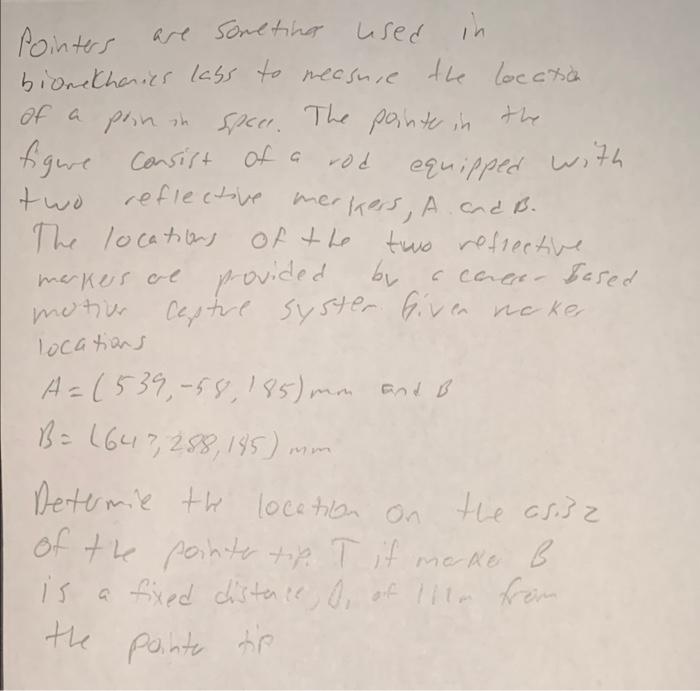 Pointers are sometimes used in
biomechanics labs to measure the location
of a poin in space. The pointer in the
figure consist of a rod equipped with
two reflective merkers, A and B.
The locations of the two reflective
markers are provided by a camera-based
motion capture system. Given marker
locations
A = (539, -58, 185) mm and B
B = (647, 288, 195) mm
Determie the location on the
of the pointer tip. T if marker B
is a fixed distance, D, of 111m from
the pointe tip